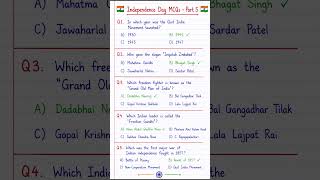 Independence Day MCQs - Part 5
Q1. In which year was the India
Movement launched?
A) 1930 B) 1942 ✓
C) 1935 D) 1947
Q2. Who gave the slogan "Inquilab Zindabad"?
A) Mahatma Gandhi B) Bhagat Singh ✓
C) Jawaharlal Nehru D) Sardar Patel
Q3. Which freedom fighter is known as the
"Grand Old Man of India"?
A) Dadabhai Naoroji ✓ B) Bal Gangadhar Tilak
C) Gopal Krishna Gokhale D) Lala Lajpat Rai
Q4. Which Indian leader is called the
"Frontier Gandhi"?
A) Khan Abdul Ghaffar Khan ✓ B) Maulana Abul Kalam Azad
C) Subhas Chandra Bose D) Rajendra Prasad
Q5. Which was the first major war of
Indian independence fought in 1857?
A) Battle of Plassey B) Revolt of 1857 ✓
C) Non-Cooperation Movement D) Quit India Movement
A) Mahatma
C) Jawaharlal
Q3. Which free
"Grand Ol
A) Dadabhai
C) Gopal Krishn
Q4. Which
Bhagat Singh ✓
Sardar Patel
known as the
Bal Gangadhar Tilak
Lala Lajpat Rai
the